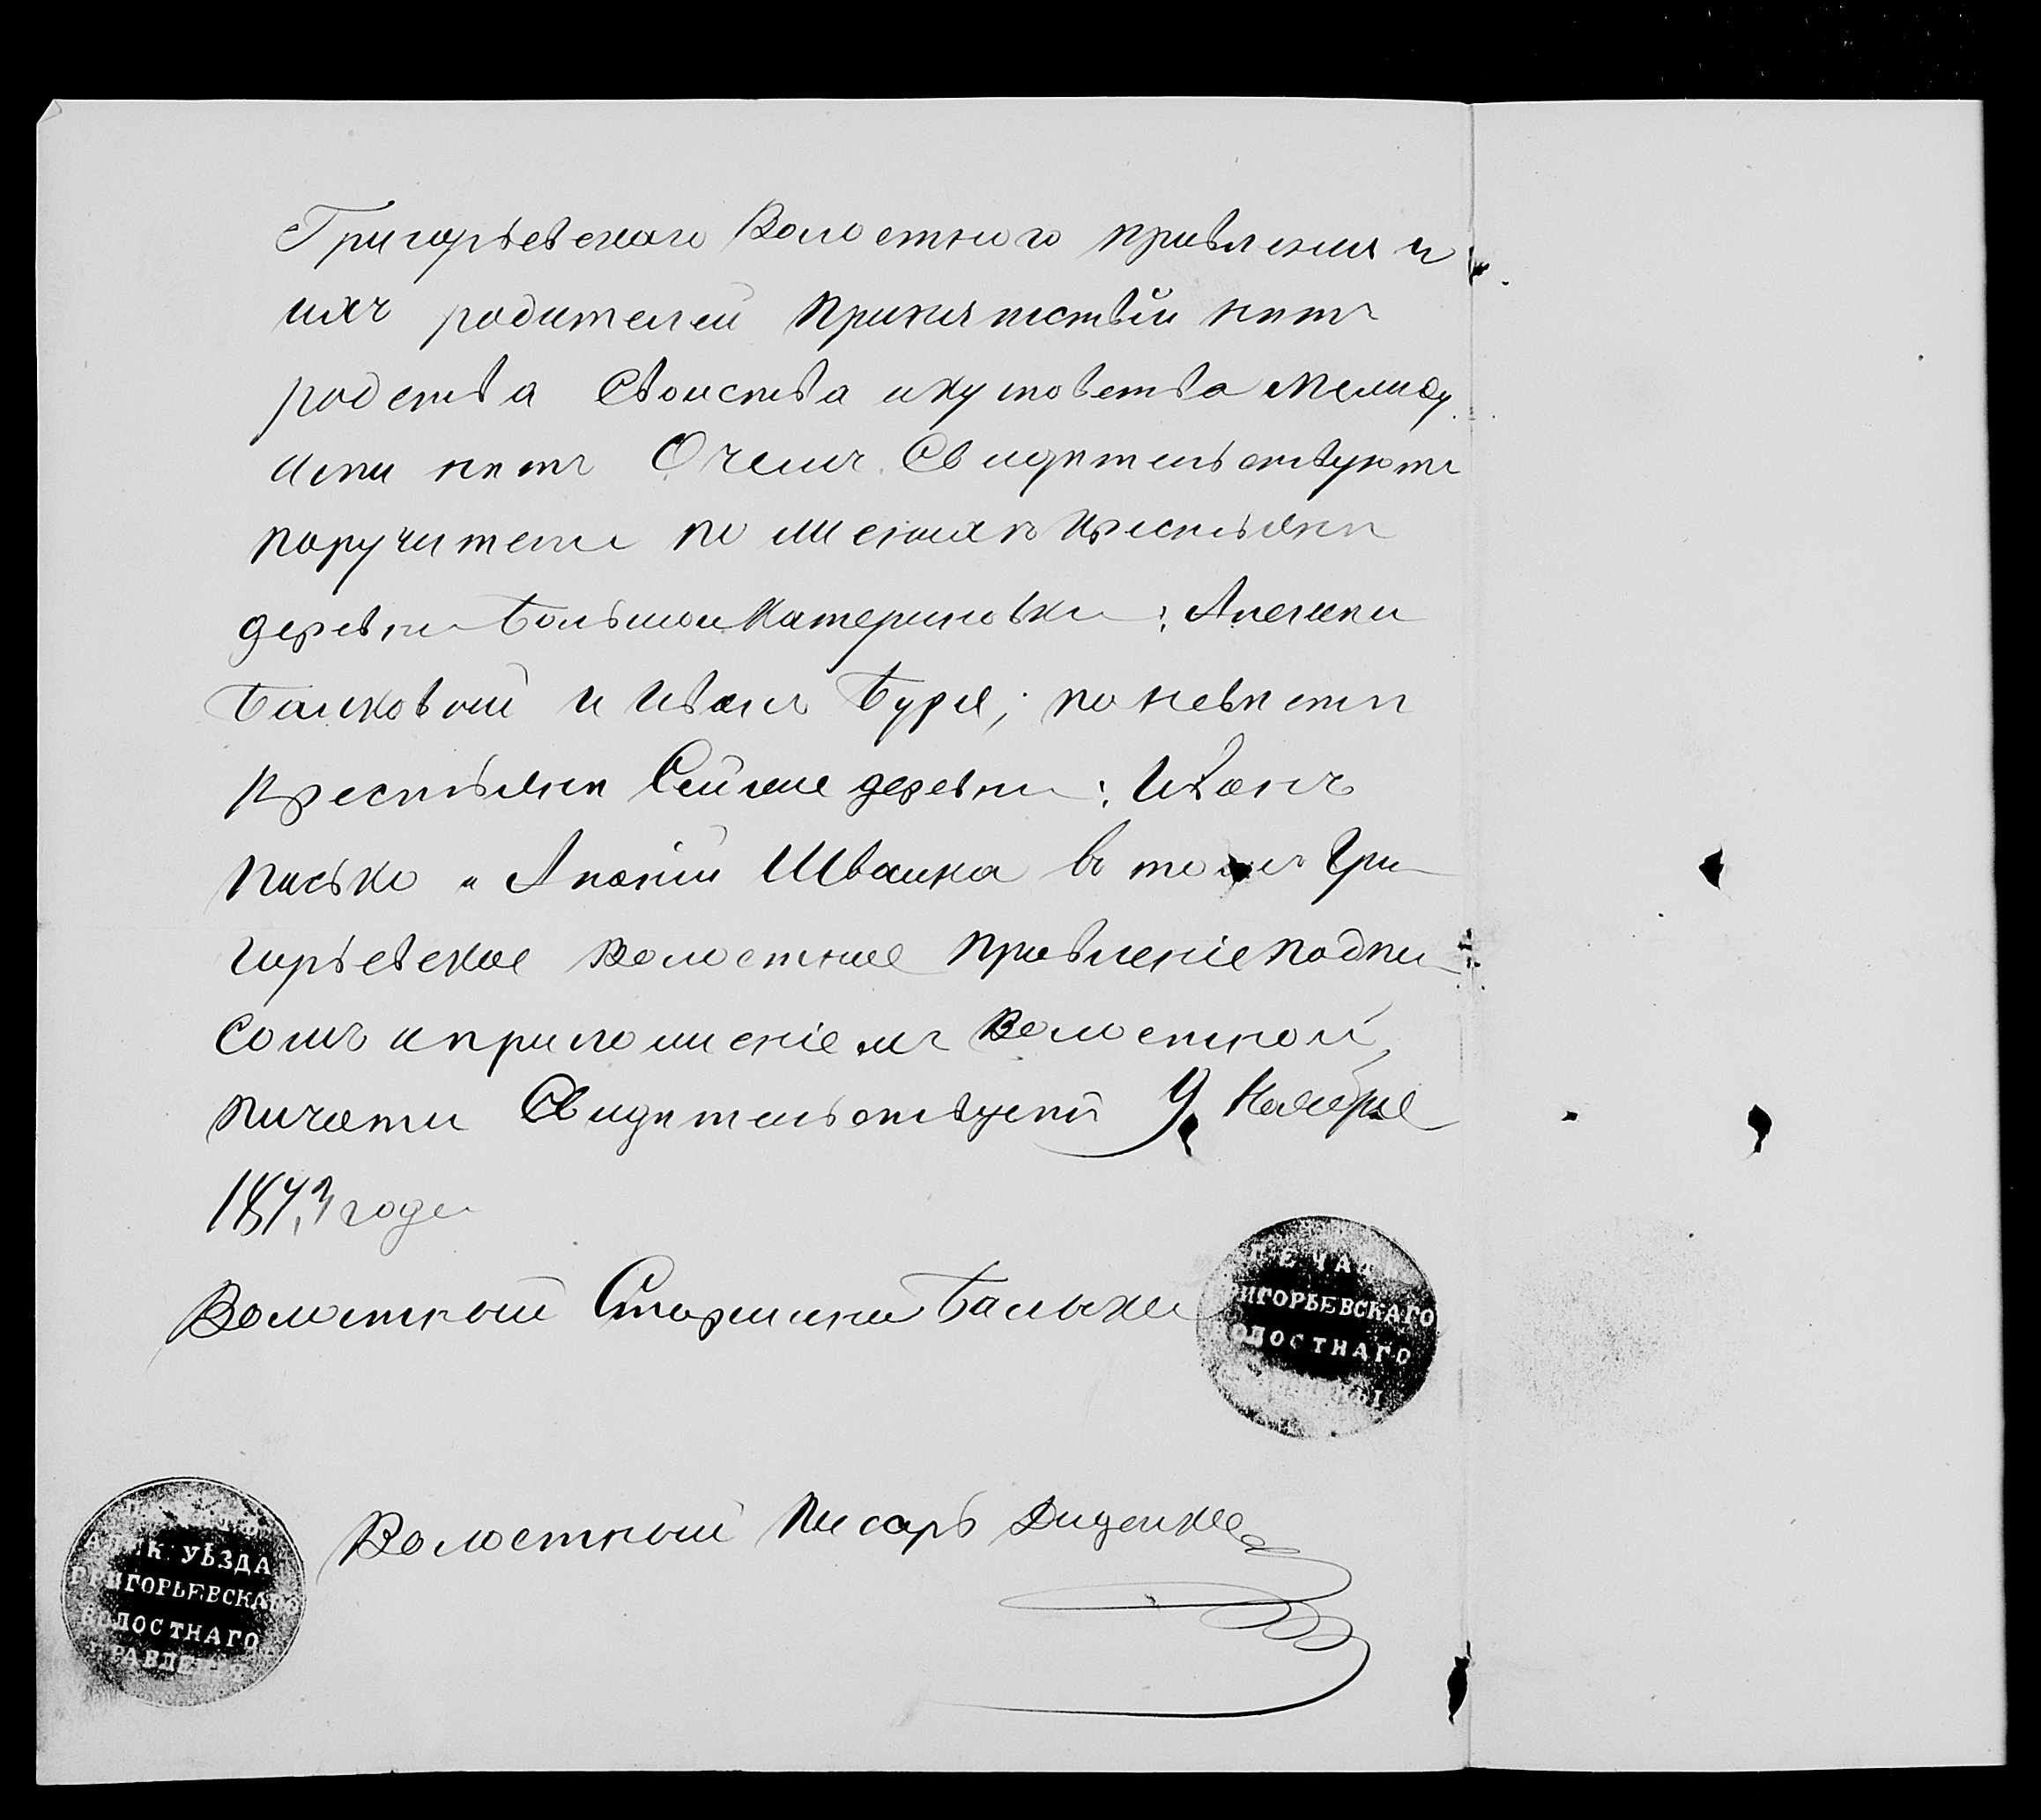 Григорьевскаго Волостнаго правленія и
ихъ родителей Препятствій нѣтъ
родства Свойства икумовства Между
ими нѣтъ О чемъ Свидѣтельствуютъ
поручители по женихѣ Крестьяне
деревни Большой Катериновки: Алексѣй
Балковый и Иванъ Буря; по невѣстѣ
Крестьяне Сей же деревни: Иванъ
Писько и Ананій Швайка въ томъ Гри-
горьевское Волостное правленіе подпи-
сомъ и приложеніемъ Волостной
печати Свидѣтельствуетъ 9 Ноября
1873 года
Волостной Старшина Балыка
ПЕЧАТЬ
ГРИГОРЬЕВСКАГО
ВОЛОСТНАГО
Волостной Писарь Диденко
УѢЗДА
ГРИГОРЬЕВСКАГО
ВОЛОСТНАГО
ПРАВЛЕНІЯ